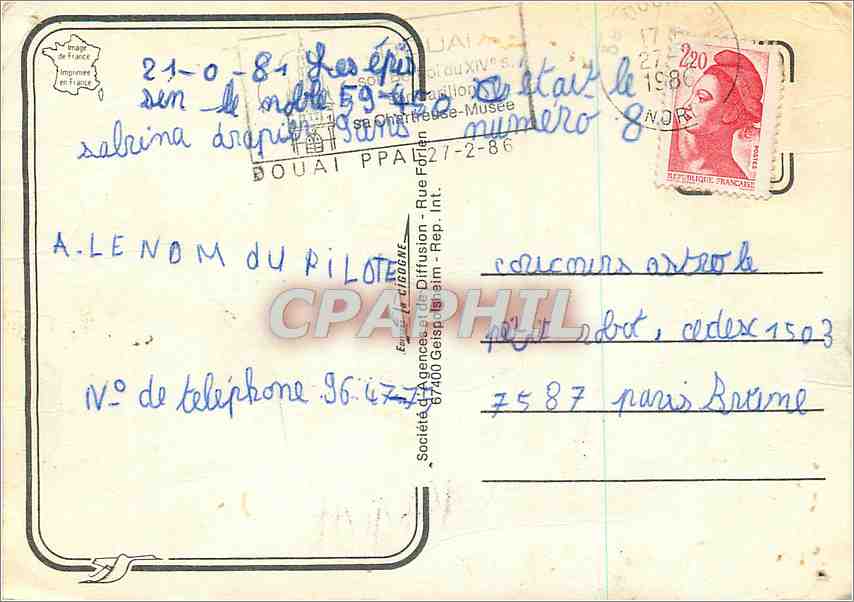 Image
de France
Imprimée
en France
21-0-81 Les épis
sen le noble 59-450 était le
sabrina drapier 9ans numéro 8
son Beffroi du XIVe s.
sa Chartreuse-Musée
DOUAI PPAL 27-2-86
17
27-
1986
NOR
2,20
POSTES
REPUBLIQUE FRANÇAISE
A. LE NOM du PILOTE
N° de teléphone 96-47-79
Editions La CIGOGNE
Société d'Agences et de Diffusion - Rue Forlen
67400 Geispolsheim - Rep. Int.
CPAPHIL.com
coucours astro le
petit robot, cedex 1503
7587 paris Brune